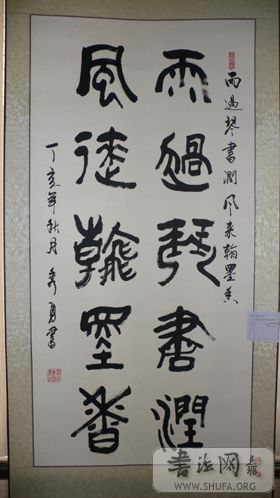 雨過琴書潤風来翰墨香
雨過琴書潤
風徠翰墨香
丁亥年秋月秀勇書
書法网
WWW.SHUFA.ORG